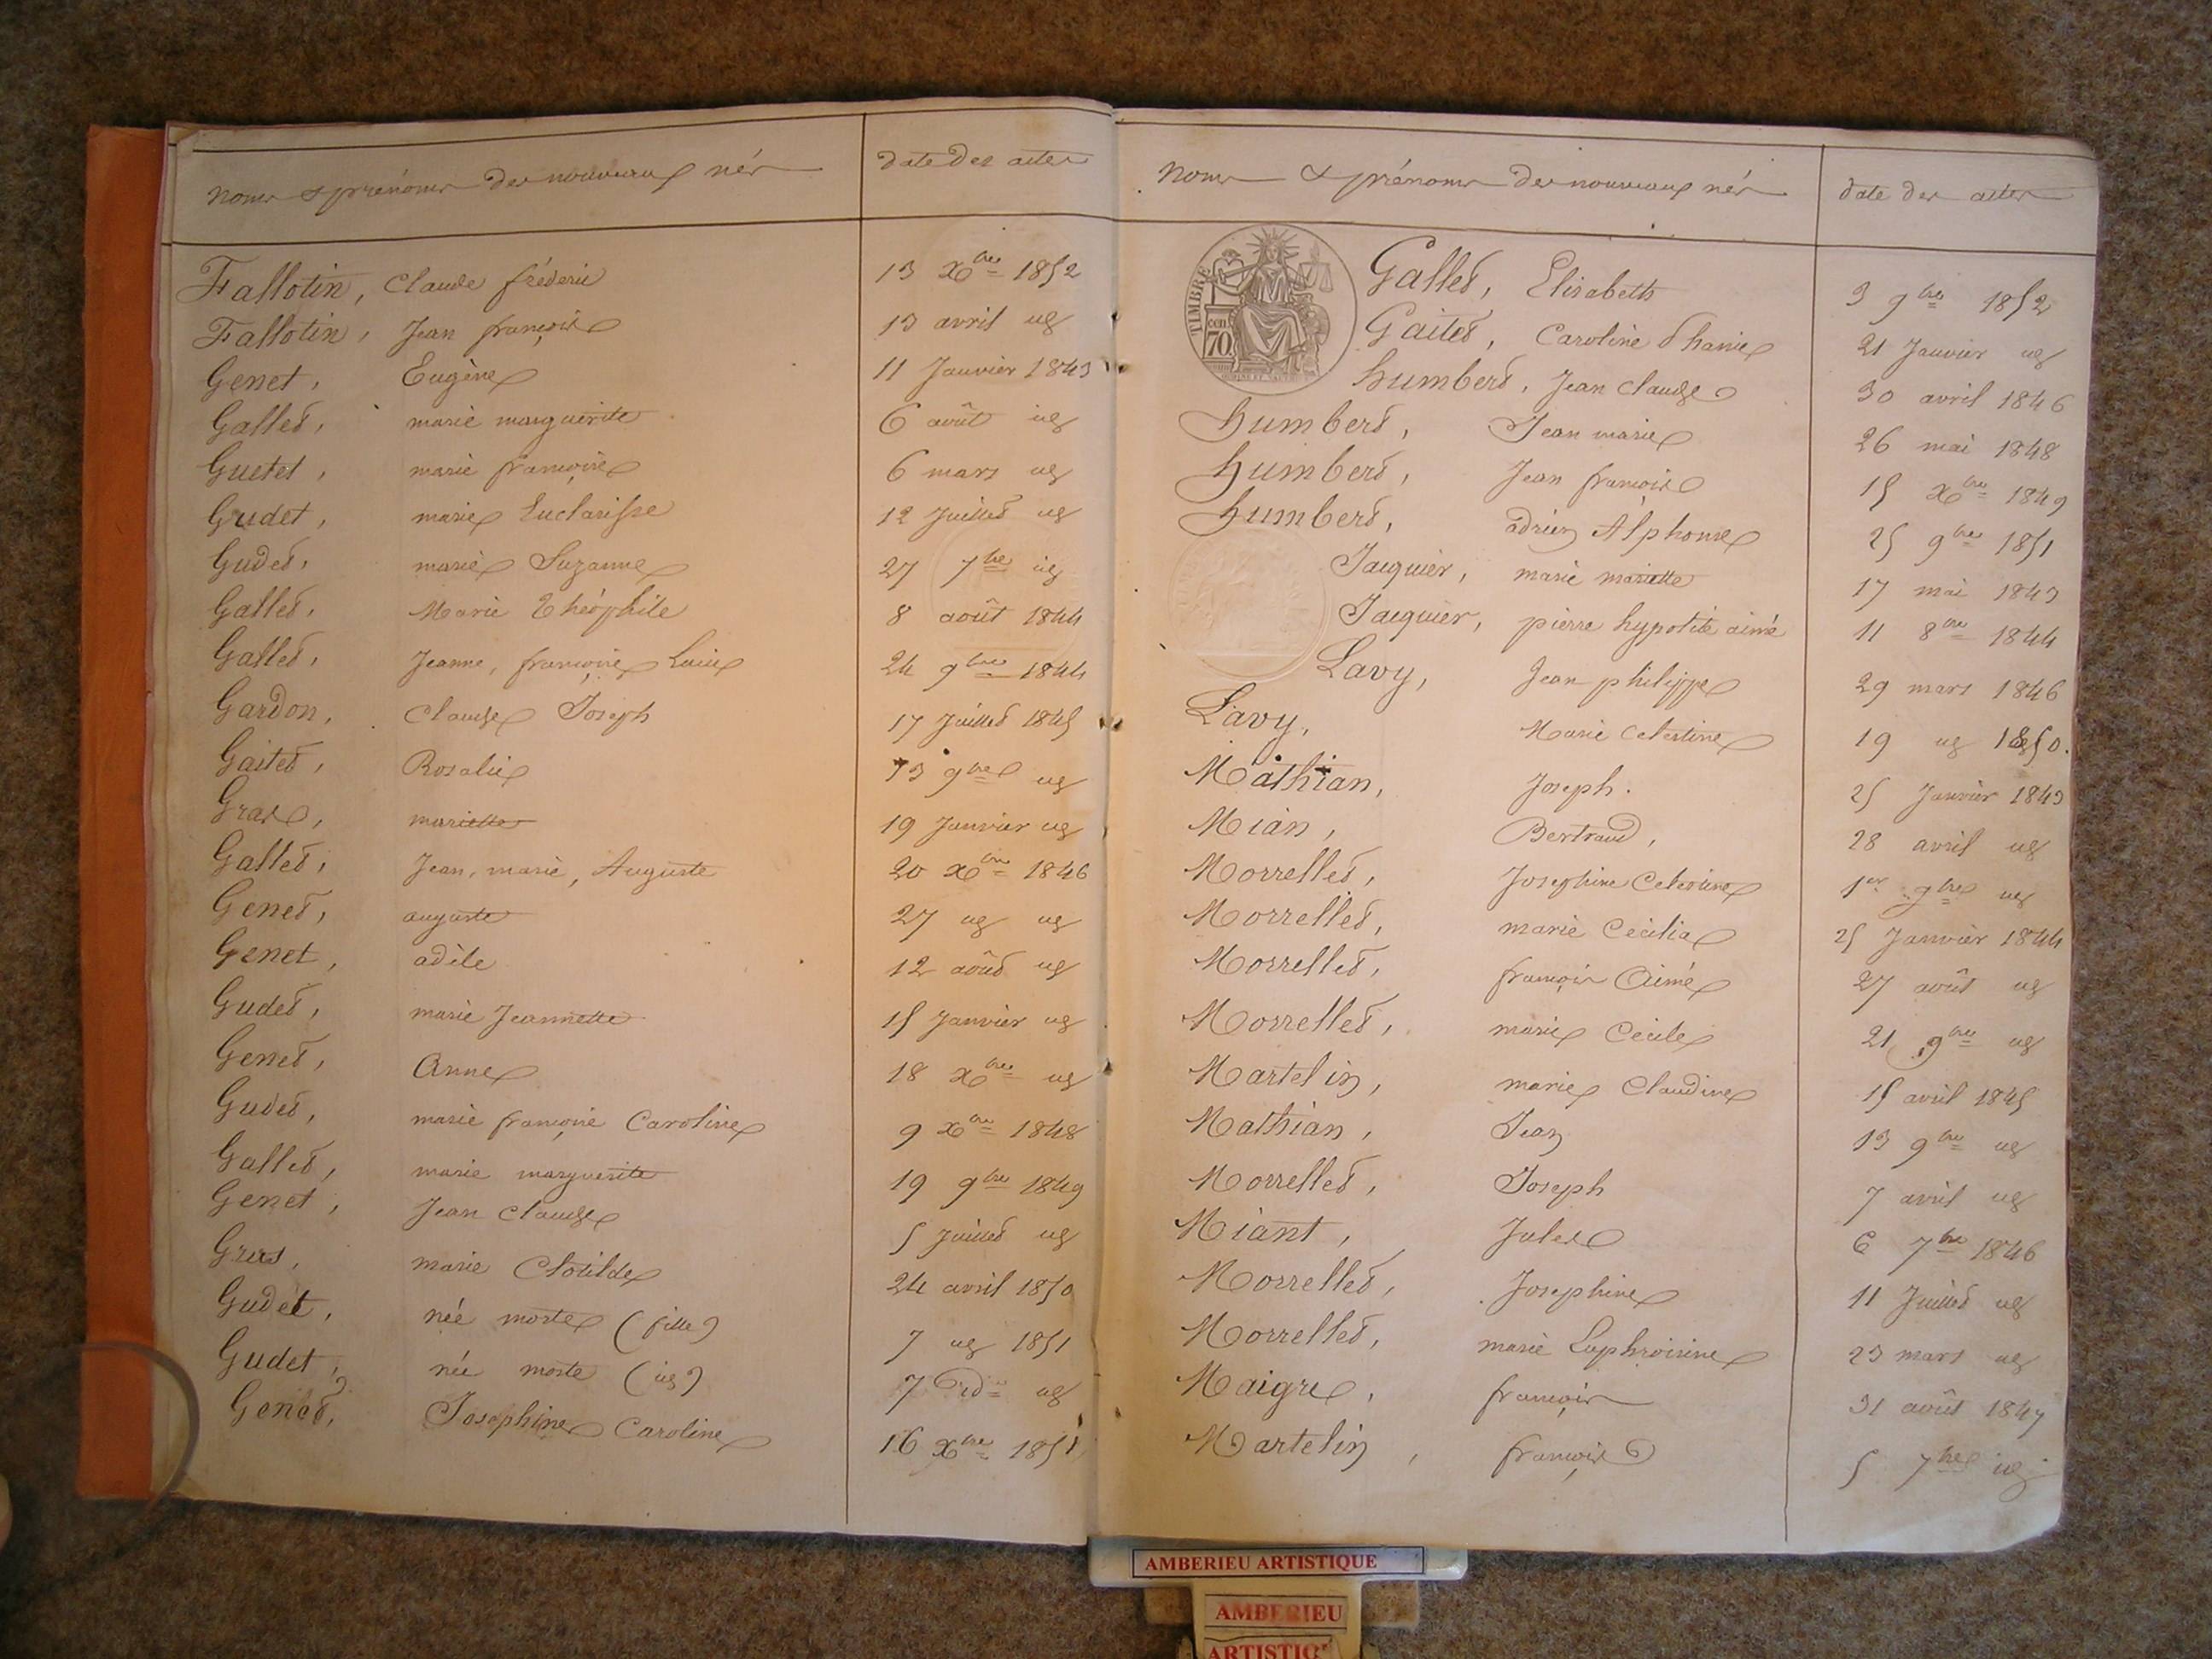 Noms & prénoms des nouveaux nés
date des actes
Fallotin, Claude fréderic 13 Xbre 1852
Fallotin, Jean françois 13 avril ug
Genet, Eugène 11 Janvier 1843
Gallet, marie marguerite 6 août ug
Guetet, marie françoise 6 mars ug
Gudet, marie Euclarisse 12 Juillet ug
Gudet, marie Suzanne 27 7bre ug
Gallet, Marie Théophile 8 août 1844
Gallet, Jeanne, françoise Louise 24 9bre 1844
Gardon, Claude Joseph 17 Juillet 1845
Gaitet, Rosalie 13 9bre ug
Gras, mariette 19 Janvier ug
Gallet, Jean, marie, Auguste 20 Xbre 1846
Genet, auguste 27 ug ug
Genet, adèle 12 août ug
Gudet, marie Jeannette 15 Janvier ug
Genet, Anne 18 Xbre ug
Gudet, marie françoise Caroline 9 Xbre 1848
Gallet, marie marguerite 19 9bre 1849
Genet, Jean Claude 5 Juillet ug
Gras, marie Clotilde 24 avril 1850
Gudet, née morte (fille) 7 ug 1851
Gudet, née morte (ug) 7 ug
Genet, Josephine Caroline 16 Xbre 1851
Noms & prénoms des nouveaux nés
date des actes
TIMBRE
cen.
70
Gallet, Elisabeth 3 9bre 1852
Gaitet, Caroline 21 Janvier ug
humbert, Jean Claude 30 avril 1846
humbert, Jean marie 26 mai 1848
humbert, Jean françois 15 Xbre 1849
humbert, adrien Alphonse 25 9bre 1851
Jacquier, marie mariette 17 mai 1843
Jacquier, pierre hypolite aimé 11 8bre 1844
Lavy, Jean philippe 29 mars 1846
Lavy, Marie Celestine 19 ug 1850.
Mathian, Joseph. 25 Janvier 1843
Mian, Bertrand, 28 avril ug
Morrellet, Josephine Celestine 1er 9bre ug
Morrellet, marie Cecilia 25 Janvier 1844
Morrellet, françois Aimé 27 août ug
Morrellet, marie Cecile 21 9bre ug
Martelin, marie Claudine 15 avril 1845
Mathian, Jean 13 9bre ug
Morrellet, Joseph 7 avril ug
Miant, Jules 6 7bre 1846
Morrellet, Josephine 11 Juillet ug
Morrellet, marie Euphroisine 23 mars ug
Maigre, françois 31 août 1847
Martelin, françois 5 7bre ug
AMBERIEU ARTISTIQUE
AMBERIEU
ARTISTIQ